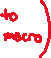 to
macro)